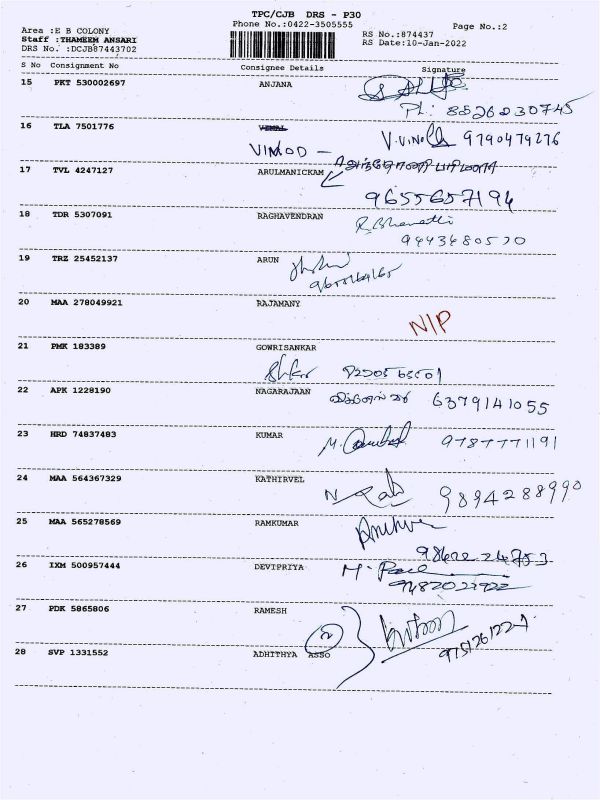 TPC/CJB DRS - P30
Phone No.:0422-3505555
Page No.:2
Area :E B COLONY
Staff :THAMEEM ANSARI
DRS No. :DCJB87443702
RS No.:874437
RS Date:10-Jan-2022
S No Consignment No Consignee Details Signature
15 PKT 530002697 ANJANA
Ph: 8526230745
16 TLA 7501776
VIMOD - V.Vinoth 9790479276
17 TVL 4247127 ARULMANICKAM
9655657194
18 TDR 5307091 RAGHAVENDRAN R. Bharathi
9443480520
19 TRZ 25452137 ARUN
20 MAA 278049921 RAJAMANY
N/P
21 PMK 183389 GOWRISANKAR
22 APK 1228190 NAGARAJAAN 6379141055
23 HRD 74837483 KUMAR 9787771191
24 MAA 564367329 KATHIRVEL
9894288990
25 MAA 565278569 RAMKUMAR
9842224753
26 IXM 500957444 DEVIPRIYA
27 PDK 5865806 RAMESH
28 SVP 1331552 ADHITHYA ASSO